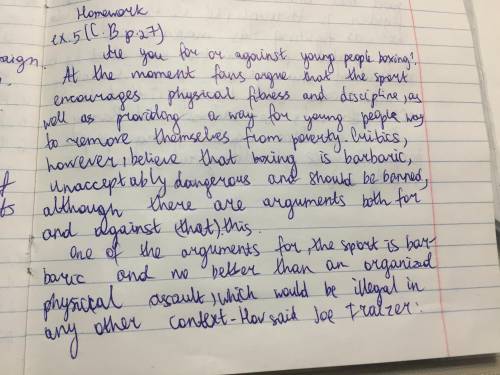 Homework
ex.5 (C.B p.27)
Are you for or against young people boxing?
At the moment fans argue that the sport
encourages physical fitness and discipline, as
well as providing a way for young people way
to remove themselves from poverty. Critics,
however, believe that boxing is barbaric,
unacceptably dangerous and should be banned,
although there are arguments both for
and against (that) this.
One of the arguments for, the sport is bar-
baric and no better than an organized
physical assault, which would be illegal in
any other context - How said Joe Fraizer: